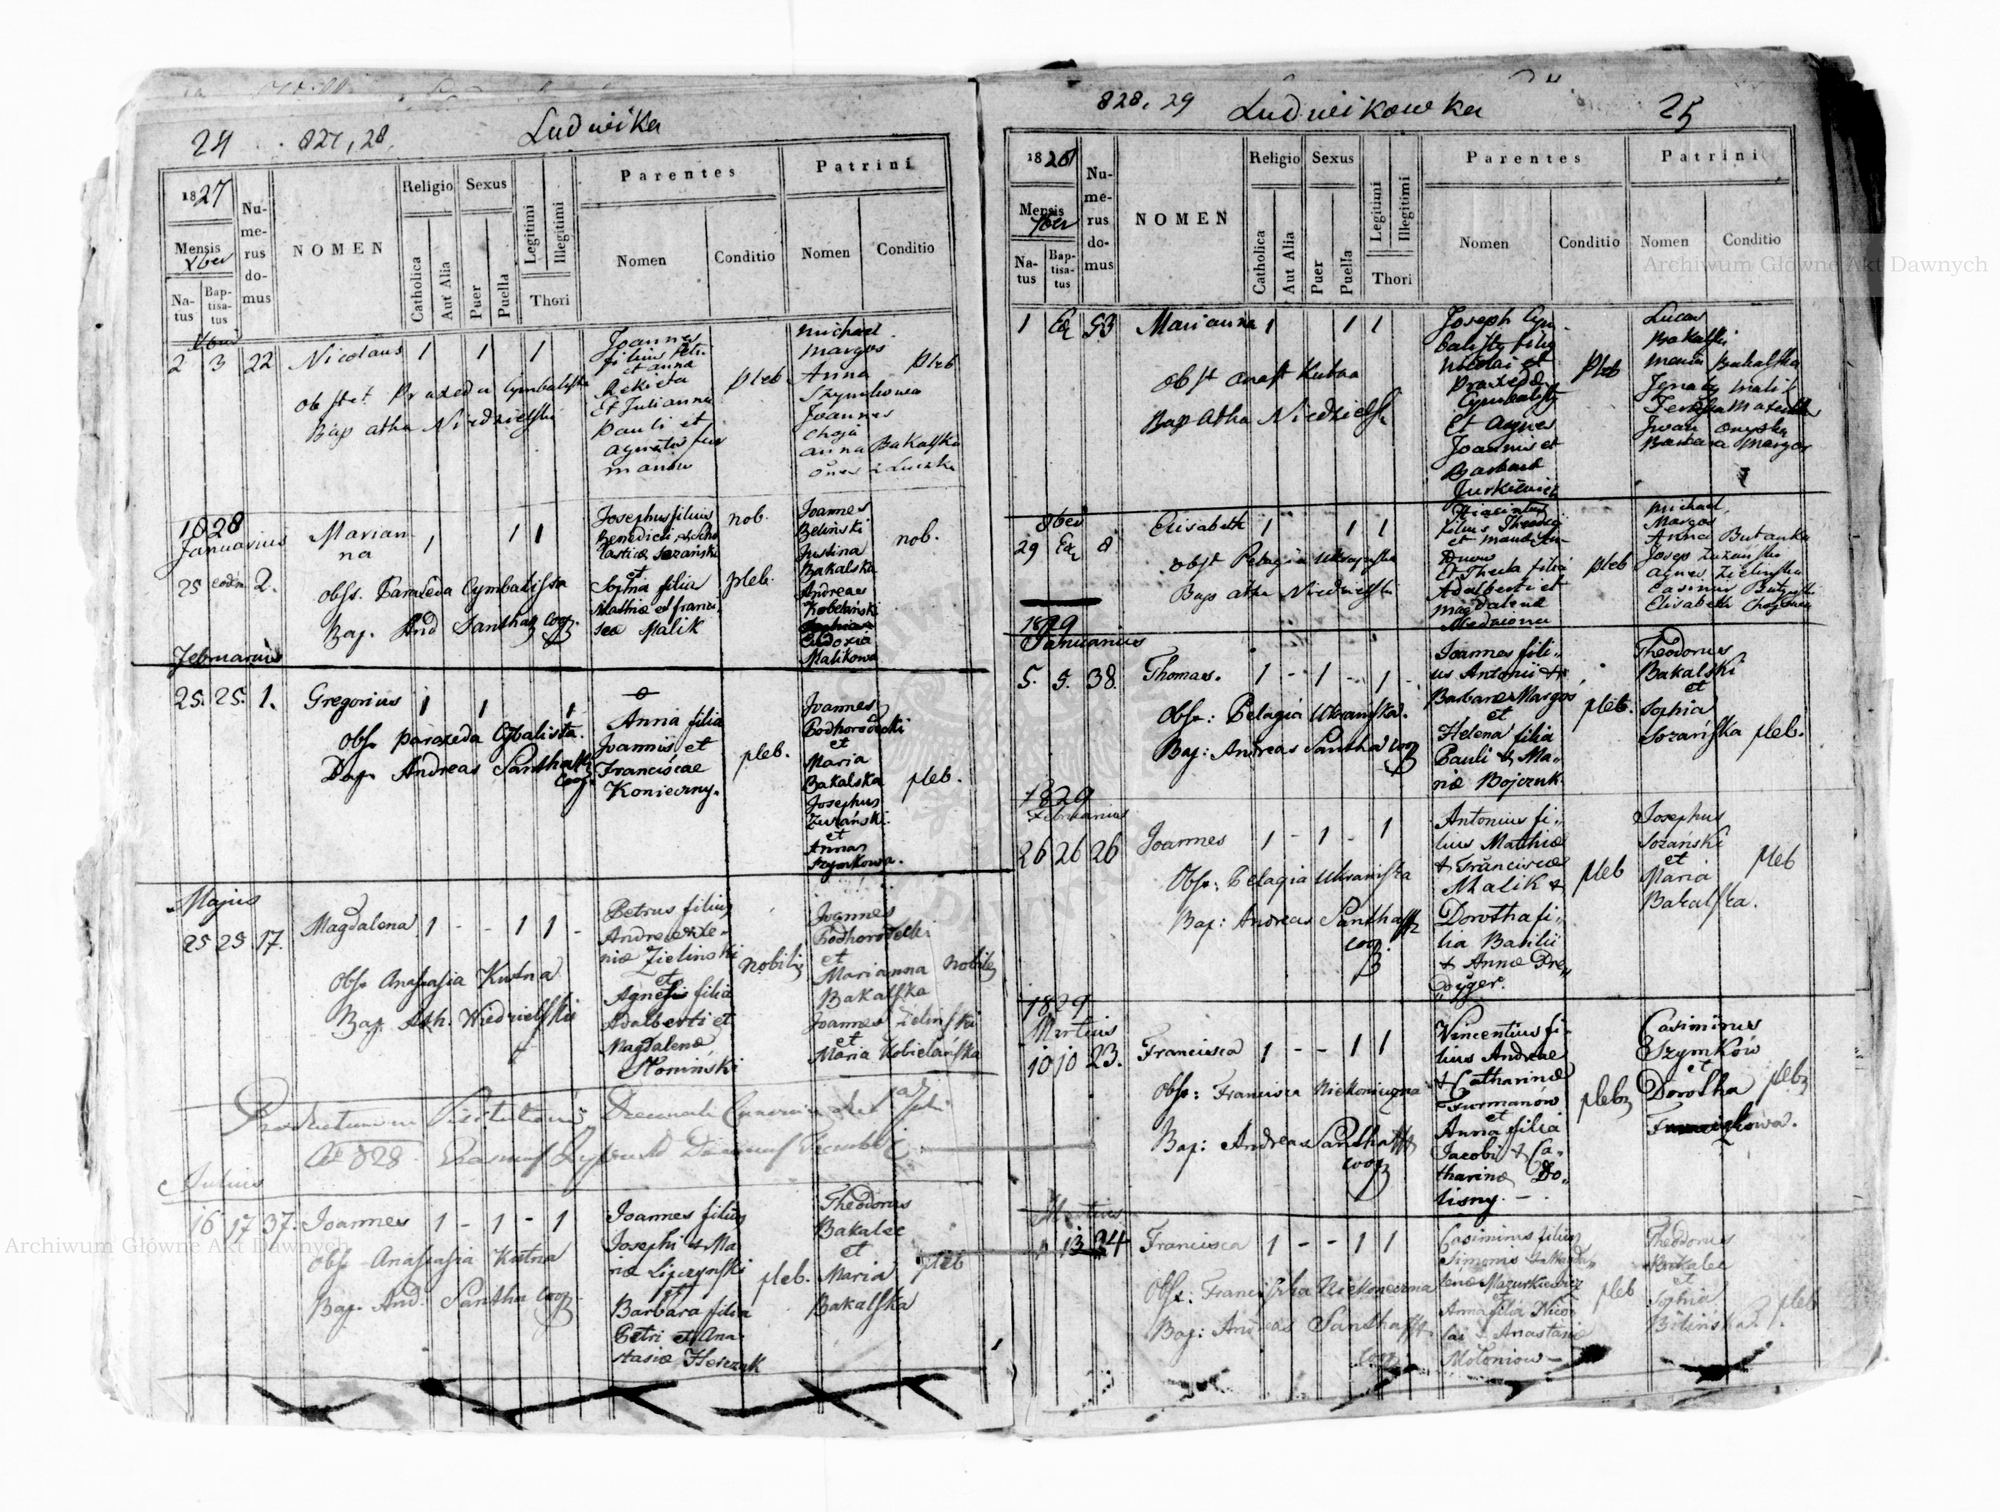 24 827, 28. Ludwika
1827
Mensis
Xber
Natus
Baptisatus
Numerus domus
NOMEN
Religio
Catholica
Aut Alia
Sexus
Puer
Puella
Legitimi
Illegitimi
Thori
Parentes
Nomen
Conditio
Patrini
Nomen
Conditio
2 3 22 Nicolaus 1 1 1
Obstet Praxeda Cymbalista
Bap atha Niedzielski
Joannes
filius Petri
et anna
Rekieta
Et Julianna
Pauli et
pleb
Michael
Margos
Anna
Szymkowa
Joannes
Choja
anna Bakalska
pleb
1828
Januarius
25 eodm 2. Marianna 1 1 1
obst. Paraxeda Cymbalista
Bap. And Santha Coop.
Josephus filius
Benedicti et Scho
lasticæ Sozański
et
Sophia filia
Mathiæ et Francis
cæ Malik
nob.
pleb.
Joannes
Beliński
Justina
Bakalska
Andreas
Kobelański
Eudoxia
Malikowa
nob.
Februarius
25. 25. 1. Gregorius 1 1 1
Obst Paraxeda Cybalista.
Bap. Andreas Santha
Coop.
Anna filia
Joannis et
Franciscae
Konieczny.
pleb.
Joannes
Podhorodecki
et
Maria
Bakalska
Josephus
Zurański
et
Anna
Szymkowa.
pleb.
Majus
25 25 17. Magdalena 1 - - 1 1 -
Obst Anastasia Kutna
Bap. Ath. Niedzielski
Petrus filius
Andreæ & Xe-
niæ Zielinski
et
Agnesis filia
Adalberti et
Magdalenæ
Słoniński
nobiles
Joannes
Podhorodecki
et
Marianna
Bakalska
Joannes Zelinski
et
Maria Kobielańska
nobiles
Productum in Visitatione Decanali
828
Julius
16 17 37. Joannes 1 - 1 - 1
Obst Anastasia Kutna
Bap. And. Santha Coop.
Joannes filius
Josephi & Ma
riæ Lipczynski
et
Barbara filia
Petri et Ana-
stasiæ Herczuk
pleb.
Theodorus
Bakalec
et
Maria
Bakalska
pleb
828, 29 Ludwikowka 25
1828
Mensis
7ber
Natus
Baptisatus
Numerus domus
NOMEN
Religio
Catholica
Aut Alia
Sexus
Puer
Puella
Legitimi
Illegitimi
Thori
Parentes
Nomen
Conditio
Patrini
Nomen
Conditio
1 Ea 53 Marianna 1 1 1
obst anast Kutna
Bap Atha Niedzielsk
Joseph Cym
balisty filiy
Nicolai et
Praxedy
Cymbalisty
Et Agnes
Joannis et
Barbara
Jurkiewicz
pleb
Lucas
Bakalski
Maria Bakalska
Ignaty Malik
Barbara Margos
8ber
29 Ea 8 Elisabeth 1 1 1
obst Pelagia Ukrainska
Bap atha Niedzielski
Hiacintus
filius
Et Thecla filia
Adalberti et
Magdalena
pleb
Michael
Margos
Anna Butanka
Josep Zuzanski
Agnes Zielinska
Casimir
Elisabeth
1829
Januarius
5. 5. 38. Thomas. 1 - 1 - 1 -
Obst: Pelagia Ukrainska.
Bap: Andreas Santha Coop
Joannes fili-
us Antonii &
Barbaræ Margos
et
Helena filia
Pauli & Ma-
riæ Bojczuk
pleb.
Theodorus
Bakalski
et
Sophia
Sozańska
pleb.
1829
Februarius
26 26 26 Joannes 1 - 1 - 1
Obst: Pelagia Ukrainska
Bap: Andreas Santha
coop.
Antonius fi-
lius Mathiæ
& Franciscæ
Malik &
Dorotha fi-
lia Basilii
& Annæ Dre-
wyger.
pleb
Josephus
Sozański
et
Maria
Bakalska.
pleb
1829
Martius
10 10 23. Francisca 1 - - 1 1
Obst: Francisca Niekonieczna
Bap: Andreas Santha
coop
Vincentius fi-
lius Andreae
& Catharinæ
Furmanów
et
Anna filia
Jacobi & Ca-
tharinæ Do-
lisny. -
plebej
Casimirus
Szymków
et
Dorotha
plebej
Martius
13 24 Francisca 1 - - 1 1
Obst: Franciska Niekonieczna
Bap: Andreas Santha
coop
Casimirus filius
Simonis & Magda
lenæ Mazurkiewicz
et
Anna filia Nico
lai & Anastasiæ
Mołoniow -
pleb
Theodorus
Bakalec
et
Sophia
Bilińska
pleb
Archiwum Główne Akt Dawnych
Archiwum Główne Akt Dawnych